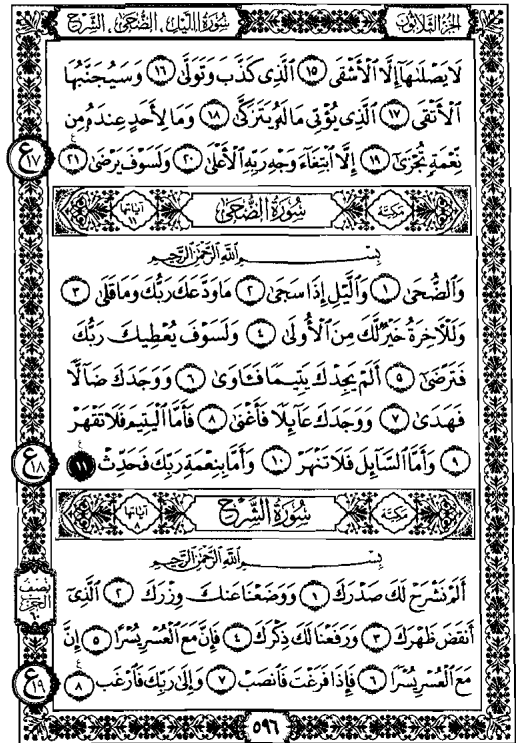 الجزء الثلاثون سورة الليل، الضحى، الشرح
لَا يَصْلَىٰهَآ إِلَّا ٱلْأَشْقَى ١٥ ٱلَّذِى كَذَّبَ وَتَوَلَّىٰ ١٦ وَسَيُجَنَّبُهَا
ٱلْأَتْقَى ١٧ ٱلَّذِى يُؤْتِى مَالَهُۥ يَتَزَكَّىٰ ١٨ وَمَا لِأَحَدٍ عِندَهُۥ مِن
نِّعْمَةٍ تُجْزَىٰٓ ١٩ إِلَّا ٱبْتِغَآءَ وَجْهِ رَبِّهِ ٱلْأَعْلَىٰ ٢٠ وَلَسَوْفَ يَرْضَىٰ ٢١
ع ١٧
مكية سورة الضحى آياتها ١١
بِسْمِ ٱللَّهِ ٱلرَّحْمَٰنِ ٱلرَّحِيمِ
وَٱلضُّحَىٰ ١ وَٱلَّيْلِ إِذَا سَجَىٰ ٢ مَا وَدَّعَكَ رَبُّكَ وَمَا قَلَىٰ ٣
وَلَلْآخِرَةُ خَيْرٌ لَّكَ مِنَ ٱلْأُولَىٰ ٤ وَلَسَوْفَ يُعْطِيكَ رَبُّكَ
فَتَرْضَىٰٓ ٥ أَلَمْ يَجِدْكَ يَتِيمًا فَـَٔاوَىٰ ٦ وَوَجَدَكَ ضَآلًّا
فَهَدَىٰ ٧ وَوَجَدَكَ عَآئِلًا فَأَغْنَىٰ ٨ فَأَمَّا ٱلْيَتِيمَ فَلَا تَقْهَرْ
٩ وَأَمَّا ٱلسَّآئِلَ فَلَا تَنْهَرْ ١٠ وَأَمَّا بِنِعْمَةِ رَبِّكَ فَحَدِّثْ ١١
ع ١٨
مكية سورة الشرح آياتها ٨
بِسْمِ ٱللَّهِ ٱلرَّحْمَٰنِ ٱلرَّحِيمِ
أَلَمْ نَشْرَحْ لَكَ صَدْرَكَ ١ وَوَضَعْنَا عَنكَ وِزْرَكَ ٢ ٱلَّذِىٓ
نصف الجزء ٦٠
أَنقَضَ ظَهْرَكَ ٣ وَرَفَعْنَا لَكَ ذِكْرَكَ ٤ فَإِنَّ مَعَ ٱلْعُسْرِ يُسْرًا ٥ إِنَّ
مَعَ ٱلْعُسْرِ يُسْرًا ٦ فَإِذَا فَرَغْتَ فَٱنصَبْ ٧ وَإِلَىٰ رَبِّكَ فَٱرْغَب ٨
ع ١٩
٥٩٦